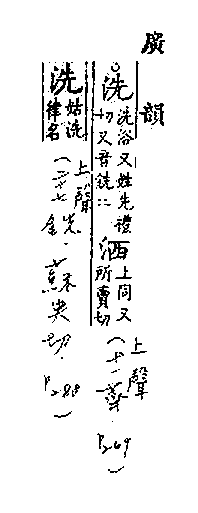 廣韻
洗 洗浴又姓先禮
切又音銑二
洒 上同又
所賣切
(上聲
十一薺
P269)
洗 姑洗
律名
(上聲
二十七銑.蘇典切.
P288)